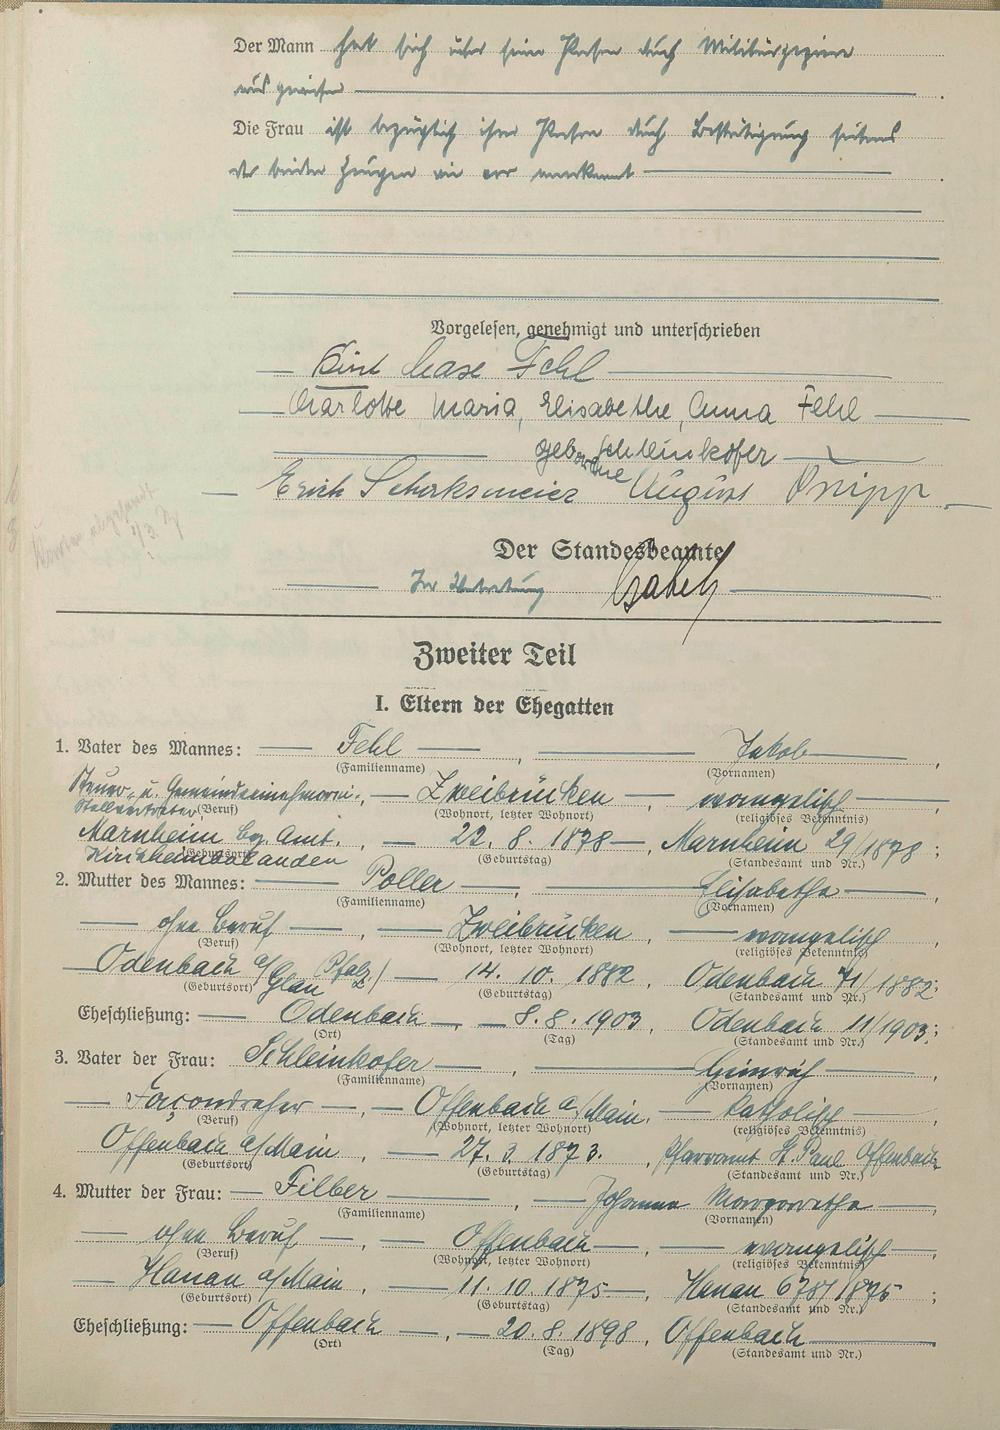 Der Mann hat sich über seine Person durch Militärpapiere
ausgewiesen.
Die Frau ist bezüglich ihrer Person durch Bestätigung seitens
der beiden Zeugen anerkannt.
Vorgelesen, genehmigt und unterschrieben
Fehl
Charlotte Maria, Elisabethe, Anna Fehl
geborene Schleinkofer
Erich August
Der Standesbeamte
In Vertretung
Zweiter Teil
I. Eltern der Ehegatten
1. Vater des Mannes: Fehl, Jakob,
(Familienname) (Vornamen)
Steuer- u. Gemeindeeinnehmerei-, Zweibrücken, evangelisch
Stellvertreter (Beruf) (Wohnort, letzter Wohnort) (religiöses Bekenntnis)
Marnheim Bez. Amt., 22. 8. 1878, Marnheim 29/1878;
Kirchheimbolanden (Geburtsort) (Geburtstag) (Standesamt und Nr.)
2. Mutter des Mannes: Poller, Elisabetha,
(Familienname) (Vornamen)
ohne Beruf, Zweibrücken, evangelisch,
(Beruf) (Wohnort, letzter Wohnort) (religiöses Bekenntnis)
Odenbach a/Glan Pfalz, 14. 10. 1882, Odenbach 71/1882;
(Geburtsort) (Geburtstag) (Standesamt und Nr.)
Eheschließung: Odenbach, 8. 8. 1903, Odenbach 11/1903;
(Ort) (Tag) (Standesamt und Nr.)
3. Vater der Frau: Schleinkofer, Heinrich,
(Familienname) (Vornamen)
Façondreher, Offenbach a/Main, katholisch,
(Beruf) (Wohnort, letzter Wohnort) (religiöses Bekenntnis)
Offenbach a/Main, 27. 3. 1873. Pfarramt St. Paul Offenbach
(Geburtsort) (Geburtstag) (Standesamt und Nr.)
4. Mutter der Frau: Filber, Johanna Margaretha,
(Familienname) (Vornamen)
ohne Beruf, Offenbach, evangelisch,
(Beruf) (Wohnort, letzter Wohnort) (religiöses Bekenntnis)
Hanau a/Main, 11. 10. 1875, Hanau 678/1875;
(Geburtsort) (Geburtstag) (Standesamt und Nr.)
Eheschließung: Offenbach, 20. 8. 1898, Offenbach.
(Ort) (Tag) (Standesamt und Nr.)